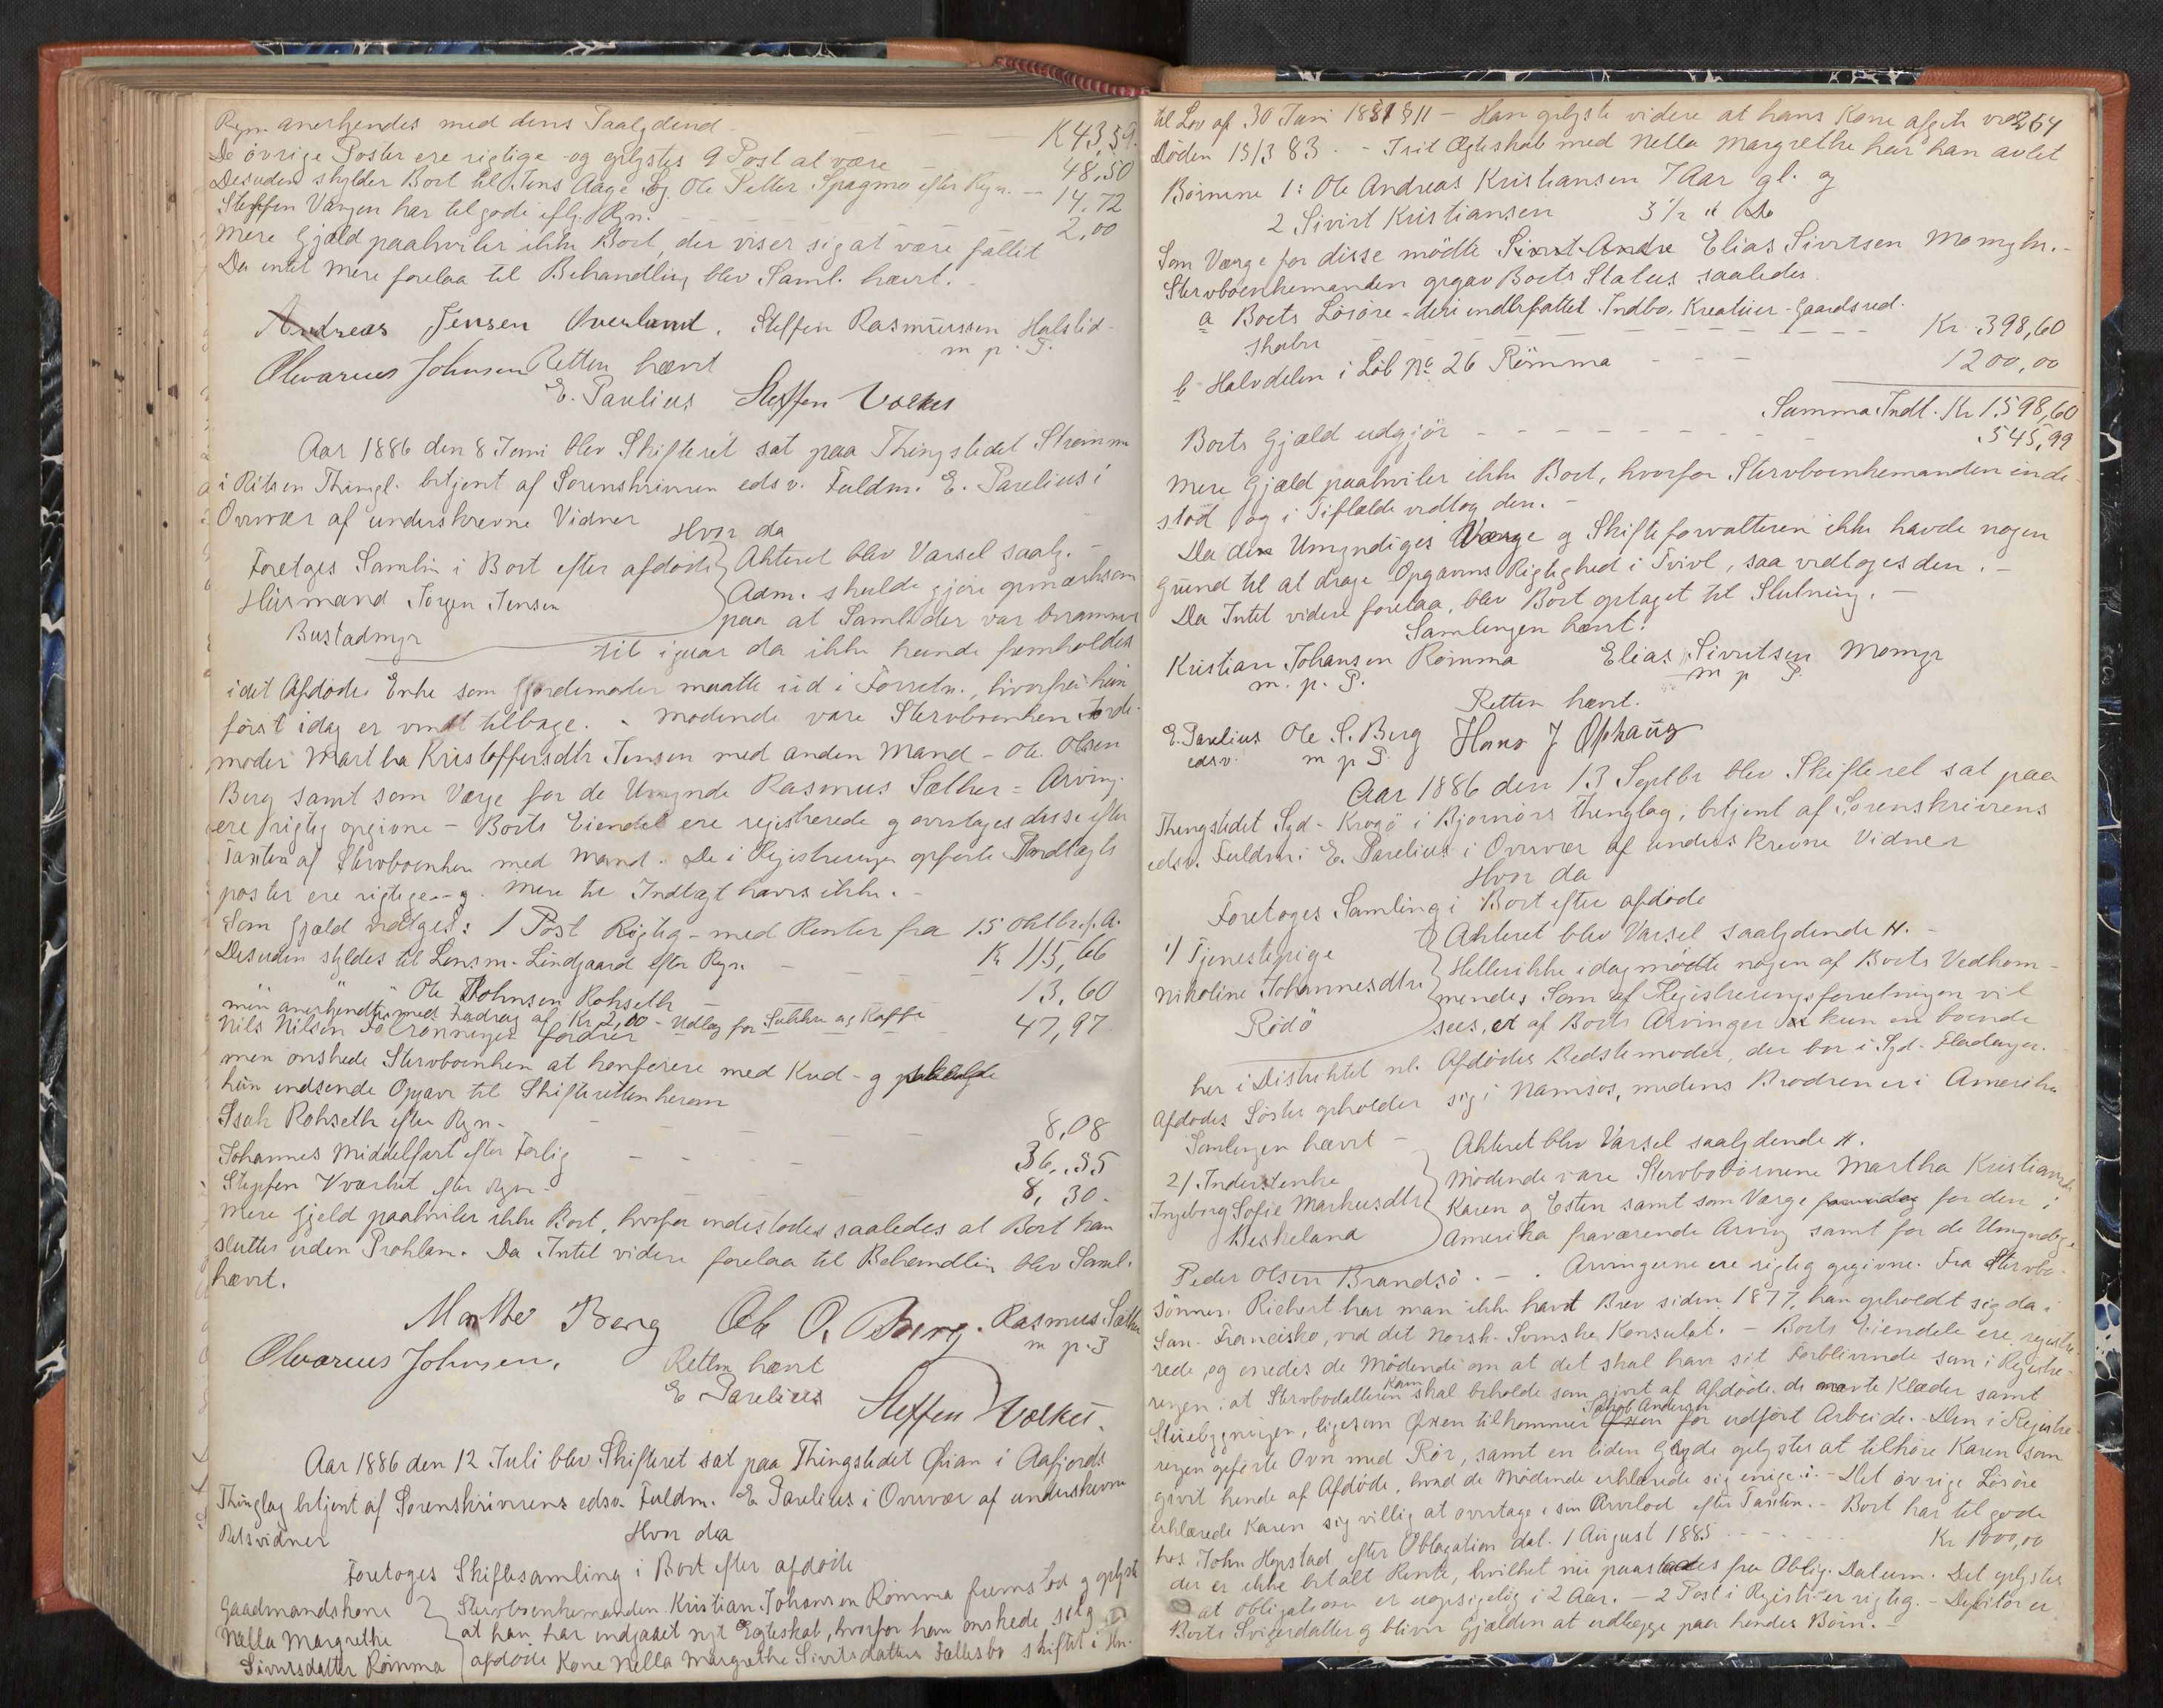 Regn. anerkjendes med dens Paalydend - K 43,59.
De övrige Poster ere rigtige og oplystes 9 Post at være - 48,50
Desuden skylder Boet til Jens Aage Lbg Ole Petter Spagmo efter Regn. - 14,72
Steffen Vangen har tilgode eflg. Rgn. 2,00
Mere Gjæld paahviler ikke Boet, der viser sig at være fallit
Da intet mere forelaa til Behandling blev Saml. hævet.
Andreas Jensen Overland. Steffen Rasmussen Halslid
m. p. P.
Olevarius Johnsen Retten hævet
E. Parelius Steffen Volket
Aar 1886 den 8 Juni blev Skifteret sat paa Thingstedet Strömm
i Ritsen Thingl. betjent af Sorenskriveren edsv. Fuldm. E. Parelius i
Overvær af underskrevne Vidner
Hvor da
Foretoges Samlin i Boet efter afdöde
Husmand Jörgen Jensen
Bustadmyr
Akteret blev Varsel saalg. -
Adm. skulde gjöre opmærksom
paa at Samlinger var berammet
til igaar da ikke kunde fremholdes
idet Afdödes Enke som Gjordemoder maatte ud i Forretn., hvorfra hun
först idag er vendt tilbage. - Mödende vare Stervboenken Jorde-
moder Martha Kristoffersdtr Jensen med anden Mand - Ole Olsen
Berg samt som Værge for de Umynde Rasmus Sæther = Arving.
ere rigtig opgivne - Boets Eiendel ere registrerede og overtages disse efter
Taxten af Stervboenken med Mand. De i Registreringen opförte Indtægts
poster ere rigtige - og Mere til Indtægt haves ikke. -
Som Gjæld vedtoges: 1 Post Rigtig - med Renter fra 15 Oktbr. f. A.
Desuden skyldes til Lensm. Lindgaard efter Rgn. - K 115,66
" " Ole Johnsen Rokseth - 13,60
men anerkjendtes med Fradrag af Kr 2,00 - Udlæg for Sukker og Kaffe
Nils Nilsen Fölrönningen fordrer 47,97
men önskede Stervboenken at konferere med Kred - og skulde
hun indsende Opgave til Skifteretten herom
Isak Rokseth efter Rgn. - 8,08
Johannes Middelfart efter Forlig - 36,35
Steffen Kværket efter Rgn - 8,30.
Mere Gjeld paahviler ikke Boet, hvorfor indestodes saaledes at Boet kan
sluttes uden Proklam. Da Intet videre forelaa til Behandlin blev Saml.
hævet.
Marthe Berg Ole O. Berg. Rasmus Sæther
m. p. P
Olevarius Johnsen. Retten hævet
E Parelius Steffen Volket.
Aar 1886 den 12 Juli blev Skifteret sat paa Thingstedet Öian i Aafjords
Thinglag betjent af Sorenskriverens edsv. Fuldm. E Parelius i Overvær af underskrevne
Retsvidner Hvor da
Foretoges Skiftesamling i Boet efter afdöde
Gaadmandskone
Nella Margrethe
Sivertsdatter Römma
Stervboenkemanden Kristian Johansen Römma fremstod og oplyste
at han har indgaaet nyt Egteskab, hvorfor han önskede sit og
afdöde Kone Nella Margrethe Sivertsdatters Fællesbo skiftet i Hn.
264
til Lov af 30 Juni 1851 § 11 - Han oplyste videre at hans Kone afgik ved
Döden 15/3 83. - I sit Ægteskab med Nella Margrethe har han avlet
Börnene 1: Ole Andreas Kristiansen 7 Aar gl. og
2 Sivert Kristiansen 3 1/2 " Do
Som Værge for disse mödte Sivert Andre Elias Sivertsen Momyr. -
Stervboenkemanden opgav Boets Status saaledes
a Boets Lösöre - deri indbefattet Indbo, Kreatuer - Gaardsred-
skaber - Kr. 398,60
b Halvdelen i Löb No 26 Römma - 1200,00
Summa Indt. Kr 1598,60
Boets Gjæld udgjör - 545,99
Mere Gjæld paahviler ikke Boet, hvorfor Stervboenkemanden inde-
stod og i Tifælde vedtog den. -
Da den Umyndiges Værge og Skifteforvalteren ikke havde nogen
Grund til at drage Opgavens Rigtighed i Tvivl, saa vedtoges den. -
Da Intet videre forelaa, blev Boet optaget til Slutning. -
Samlingen hævet.
Kristian Johansen Römma Elias Sivertsen Momyr
m. p. P. m p P.
Retten hævet.
E. Parelius Ole S. Berg Hans J Ophaug
edsv. m p P.
Aar 1886 den 13 Septbr blev Skifteret sat paa
Thingstedet Syd-Krogö i Björnörs Thinglag, betjent af Sorenskriverens
edsv. Fuldm. E. Parelius i Overvær af underskrevne Vidner
Hvor da
Foretoges Samling i Boet efter afdöde
1/ Tjenestepige
Nikoline Johannesdtr
Rödö
Akteret blev Varsel saalydende H. -
Heller ikke idag mödte nogen af Boets Vedkom-
mendes Som af Registreringsforretningen vil
sees, er af Boets Arvinger kun en boende
her i Distriktet nl. Afdödes Bedstemoder, der bor i Syd-Fladanger.
Afdödes Söster opholder sig i Namsos, medens Brodren er i Amerika
Samlingen hævet -
2/ Inderstenke
Ingeborg Sofie Markusdtr
Beskeland
Akteret blev Varsel saalydende H.
Mödende vare Stervbobörnene Martha Kristiane
Karen og Esten samt som Værge for den i
Amerika fraværende Arving samt for de Umyndige
Peder Olsen Brandsö. - . Arvingerne ere rigtig opgivne. Fra Stervbo-
sönnen Richert har man ikke havt Brev siden 1877, han opholdt sig da i
San Francisko, ved det Norsk-Svenske Konsulat. - Boets Eiendele ere registre-
rede, og enedes de Mödende om at det skal have sit Forblivende som i Registre-
ringen: at Stervbodatteren Karen skal beholde som givet af Afdöde de nævnte Klæder samt
Stuebygningen, ligesom Öxen tilkommer Jakob Andersen for udfört Arbeide. - Den i Registre-
ringen opförte Ovn med Rör, samt en liden Gryde oplystes at tilhöre Karen som
givet hende af Afdöde, hvad de Mödende erklærede sig enige i. - Det övrige Lösöre
erklærede Karen sig villig at overtage i sin Arvelod efter Taxten. - Boet har tilgode
hos John Hopstad efter Obligation dat. 1 August 1885 - Kr 1000,00
der er ikke betalt Rente, hvilket nu paastodes fra Oblig. Datum. Det oplystes
at Obligationen er uopsigelig i 2 Aar. - 2 Post i Registr. er rigtig. - Debitor er
Boets Svigerdatter og bliver Gjælden at udlægge paa hendes Börn. -